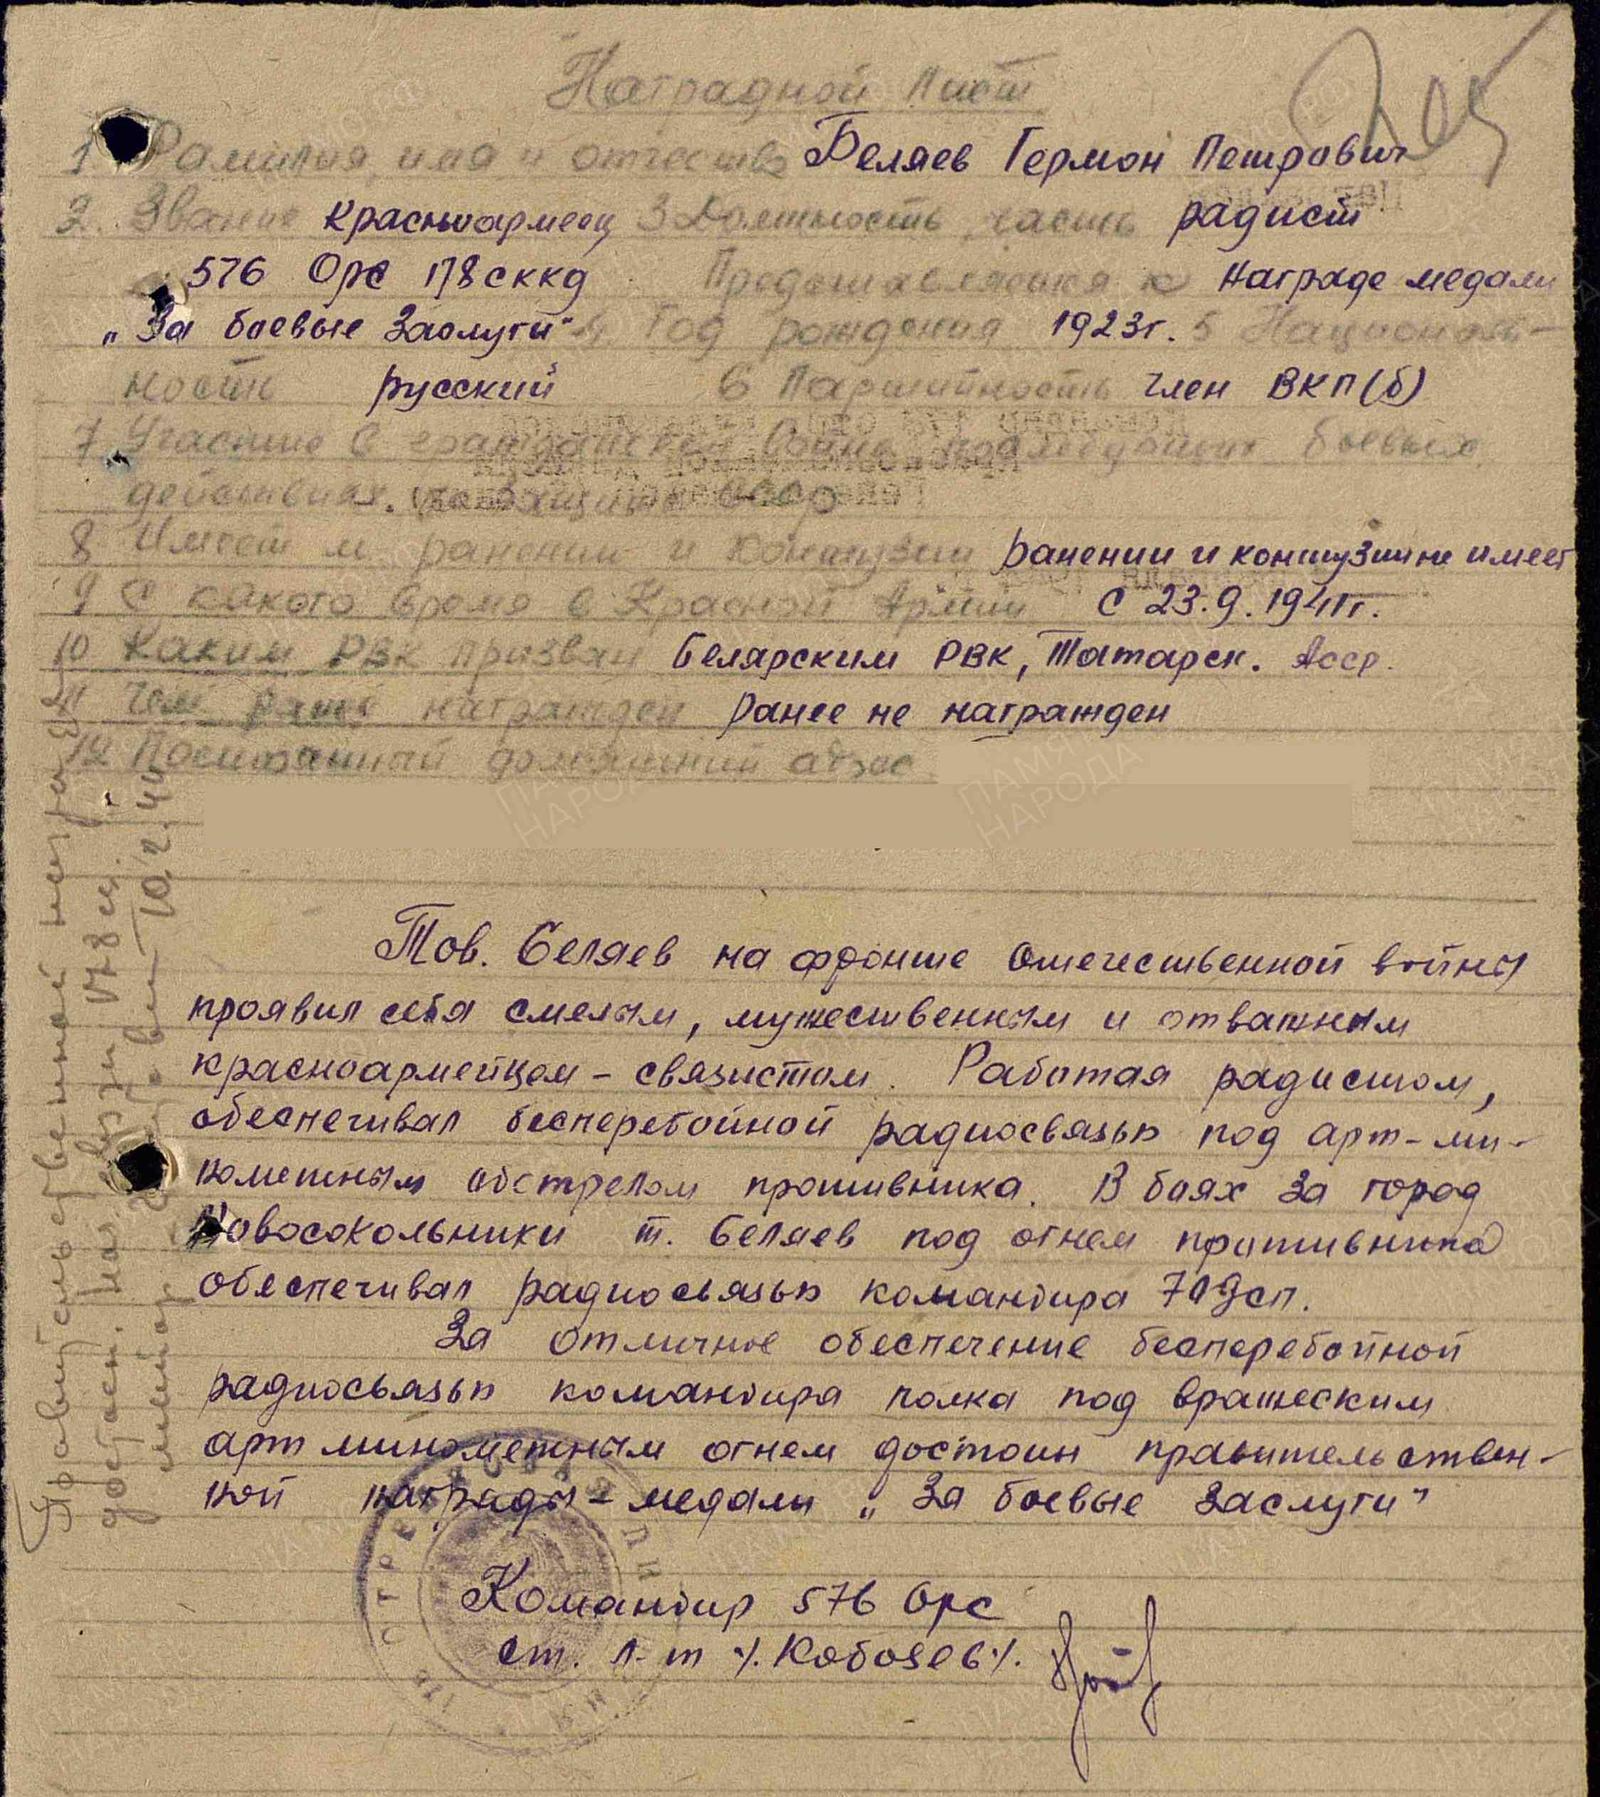 Наградной лист
1 Фамилия, имя и отчество Беляев Гермон Петрович
2. Звание красноармеец 3 Должность, часть радист
576 Орс 178 сккд Представляется к награде медали
„За боевые заслуги" 4. Год рождения 1923г. 5 Националь-
ность русский 6 Партийность член ВКП(б)
7 Участие в гражданской войне, последующих боевых
действиях по защите СССР
8 Имеет ли ранении и контузии ранении и контузии не имеет
9 С какого время в Красной Армии с 23.9.1941г.
10 Каким РВК призван Белярским РВК, Татарск. Асср.
11 Чем ранее награжден ранее не награжден
12 Постоянный домашний адрес
Тов. Беляев на фронте Отечественной войны
проявил себя смелым, мужественным и отважным
красноармейцем - связистом. Работая радистом,
обеспечивал бесперебойной радиосвязью под арт-ми-
нометным обстрелом противника. В боях за город
Новосокольники т. Беляев под огнем противника
обеспечивал радиосвязью командира 709сп.
За отличное обеспечение бесперебойной
радиосвязью командира полка под вражеским
арт минометным огнем достоин правительствен-
ной награды - медали „За боевые заслуги"
Командир 576 Орс
ст. л-т /. Кобозев /.
Правительственной награды
достоин. Нач. связи 178 сд.
майор
10.2.44